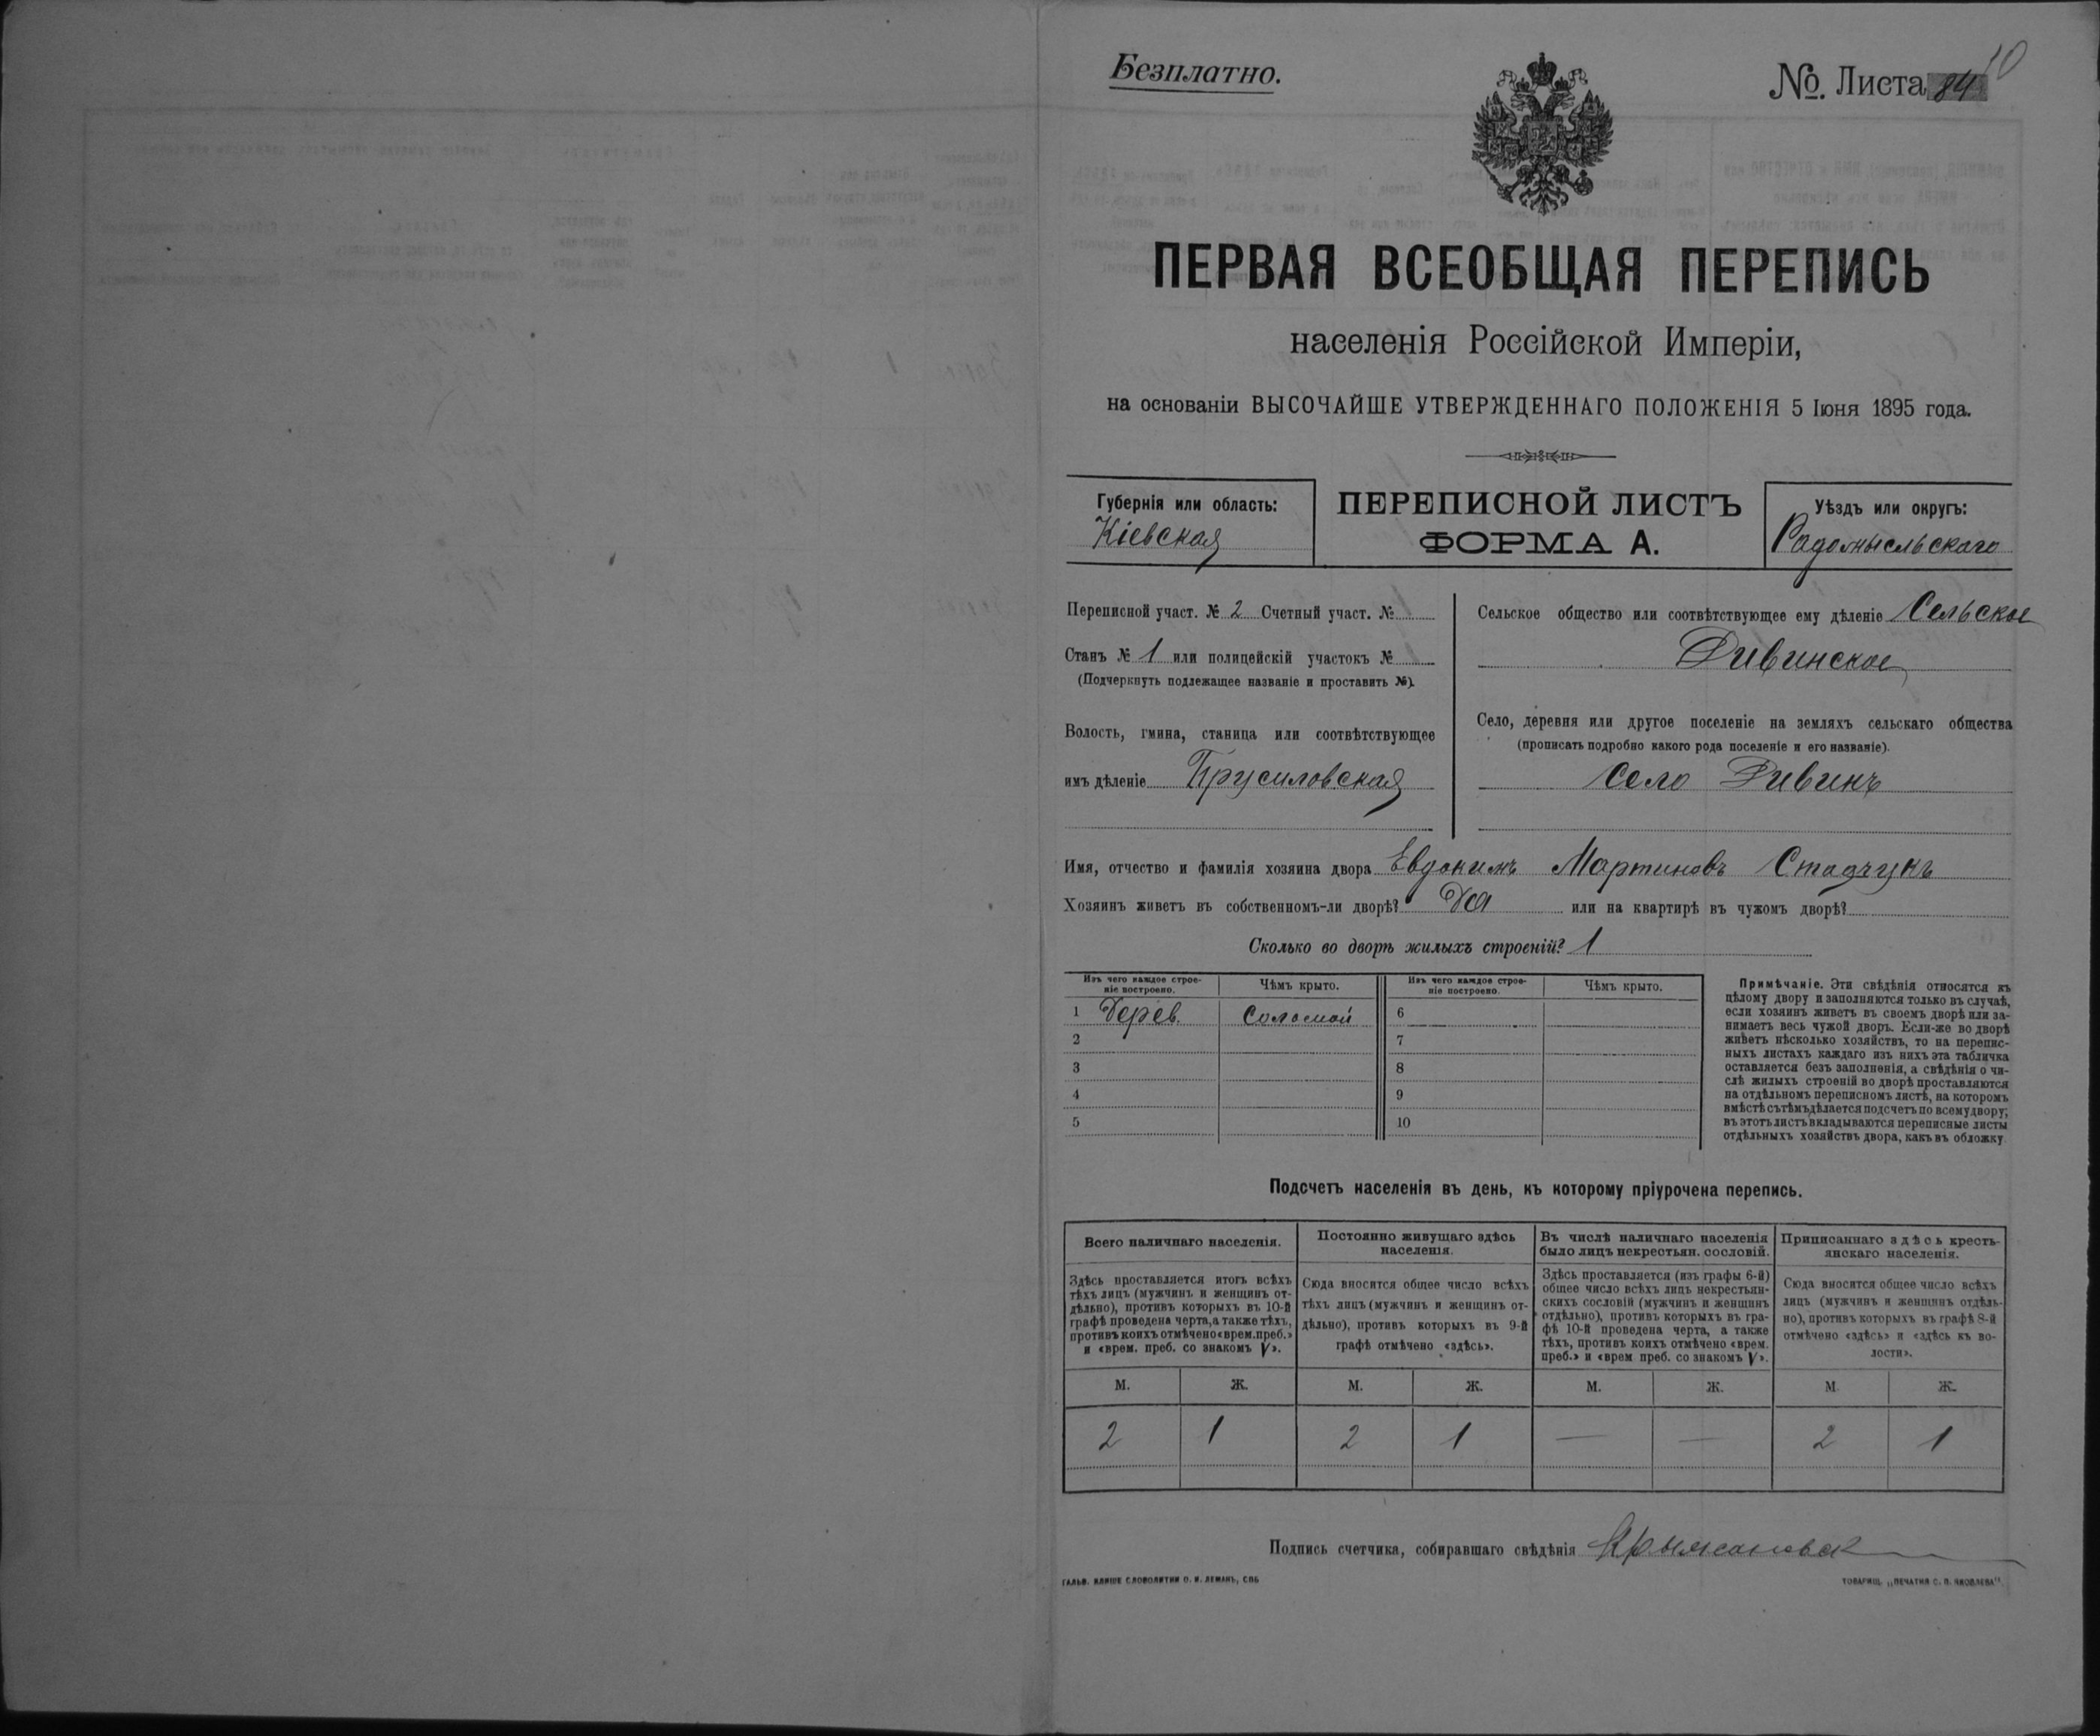 Безплатно.
№. Листа 84
10
ПЕРВАЯ ВСЕОБЩАЯ ПЕРЕПИСЬ
населенія Россійской Имперіи,
на основаніи ВЫСОЧАЙШЕ УТВЕРЖДЕННАГО ПОЛОЖЕНІЯ 5 Іюня 1895 года.
Губернія или область:
Кіевская
ПЕРЕПИСНОЙ ЛИСТЪ
ФОРМА А.
Уѣздъ или округъ:
Радомысльскаго
Переписной участ. № 2 Счетный участ. №
Станъ № 1 или полицейскій участокъ №
(Подчеркнуть подлежащее названіе и проставить №).
Волость, гмина, станица или соотвѣтствующее
имъ дѣленіе Брусиловская
Сельское общество или соотвѣтствующее ему дѣленіе Сельское
Дивинское
Село, деревня или другое поселеніе на земляхъ сельскаго общества
(прописать подробно какого рода поселеніе и его названіе).
Село Дивинъ
Имя, отчество и фамилія хозяина двора Евдокимъ Мартиновъ Стадчукъ
Хозяинъ живетъ въ собственномъ-ли дворѣ? Да или на квартирѣ въ чужомъ дворѣ?
Сколько во дворѣ жилыхъ строеній? 1
Изъ чего каждое строе-
ніе построено.
Чѣмъ крыто.
Изъ чего каждое строе-
ніе построено.
Чѣмъ крыто.
1 Дерев. Соломой 6
2 7
3 8
4 9
5 10
Примѣчаніе. Эти свѣдѣнія относятся къ
цѣлому двору и заполняются только въ случаѣ,
если хозяинъ живетъ въ своемъ дворѣ или за-
нимаетъ весь чужой дворъ. Если-же во дворѣ
живетъ нѣсколько хозяйствъ, то на перепис-
ныхъ листахъ каждаго изъ нихъ эта табличка
оставляется безъ заполненія, а свѣдѣнія о чи-
слѣ жилыхъ строеній во дворѣ проставляются
на отдѣльномъ переписномъ листѣ, на которомъ
вмѣстѣ съ тѣмъ дѣлается подсчетъ по всему двору;
въ этотъ листъ вкладываются переписные листы
отдѣльныхъ хозяйствъ двора, какъ въ обложку
Подсчетъ населенія въ день, къ которому пріурочена перепись.
Всего наличнаго населенія.
Здѣсь проставляется итогъ всѣхъ
тѣхъ лицъ (мужчинъ и женщинъ от-
дѣльно), противъ которыхъ въ 10-й
графѣ проведена черта, а также тѣхъ,
противъ коихъ отмѣчено «врем. преб.»
и «врем. преб. со знакомъ V».
Постоянно живущаго здѣсь
населенія.
Сюда вносится общее число всѣхъ
тѣхъ лицъ (мужчинъ и женщинъ от-
дѣльно), противъ которыхъ въ 9-й
графѣ отмѣчено «здѣсь».
Въ числѣ наличнаго населенія
было лицъ некрестьян. сословій.
Здѣсь проставляется (изъ графы 6-й)
общее число всѣхъ лицъ некрестьян-
скихъ сословій (мужчинъ и женщинъ
отдѣльно), противъ которыхъ въ гра-
фѣ 10-й проведена черта, а также
тѣхъ, противъ коихъ отмѣчено «врем.
преб.» и «врем преб. со знакомъ V».
Приписаннаго здѣсь кресть-
янскаго населенія.
Сюда вносится общее число всѣхъ
лицъ (мужчинъ и женщинъ отдѣль-
но), противъ которыхъ въ графѣ 8-й
отмѣчено «здѣсь» и «здѣсь къ во-
лости».
М. Ж. М. Ж. М. Ж. М. Ж.
2 1 2 1 — — 2 1
Подпись счетчика, собиравшаго свѣдѣнія
ГАЛЬВ. КЛИШЕ СЛОВОЛИТНИ О. И. ЛЕМАНЪ, СПБ
ТОВАРИЩ. „ПЕЧАТНЯ С. П. ЯКОВЛЕВА“.